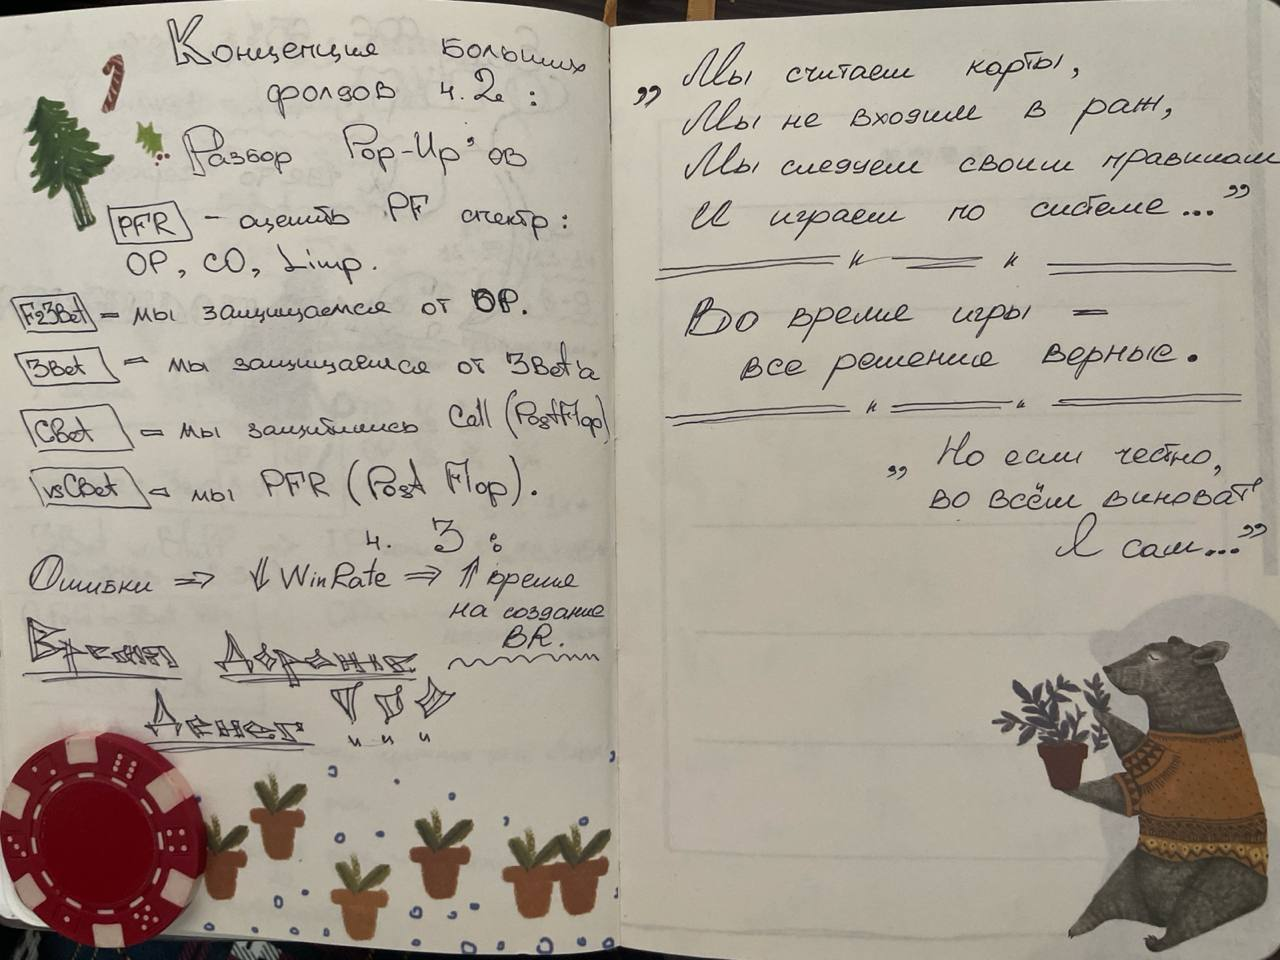 Концепция больших
фолзов ч. 2 :
Разбор Pop-Up'ов
PFR - оценить PF спектр :
OP, CO, Limp.
F23Bet - мы защищаемся от OP.
3Bet - мы защищаемся от 3Bet'a
CBet - мы защитились Call (PostFlop)
vsCBet - мы PFR (Post Flop).
ч. 3 :
Ошибки => ↓ WinRate => ↑ время
на создание
BR.
Время Дороже
Денег !!!
„ Мы считаем карты,
Мы не входим в раж,
Мы следуем своим правилам
И играем по системе..."
Во время игры -
все решения верные.
„ Но если честно,
во всём виноват
Я сам..."